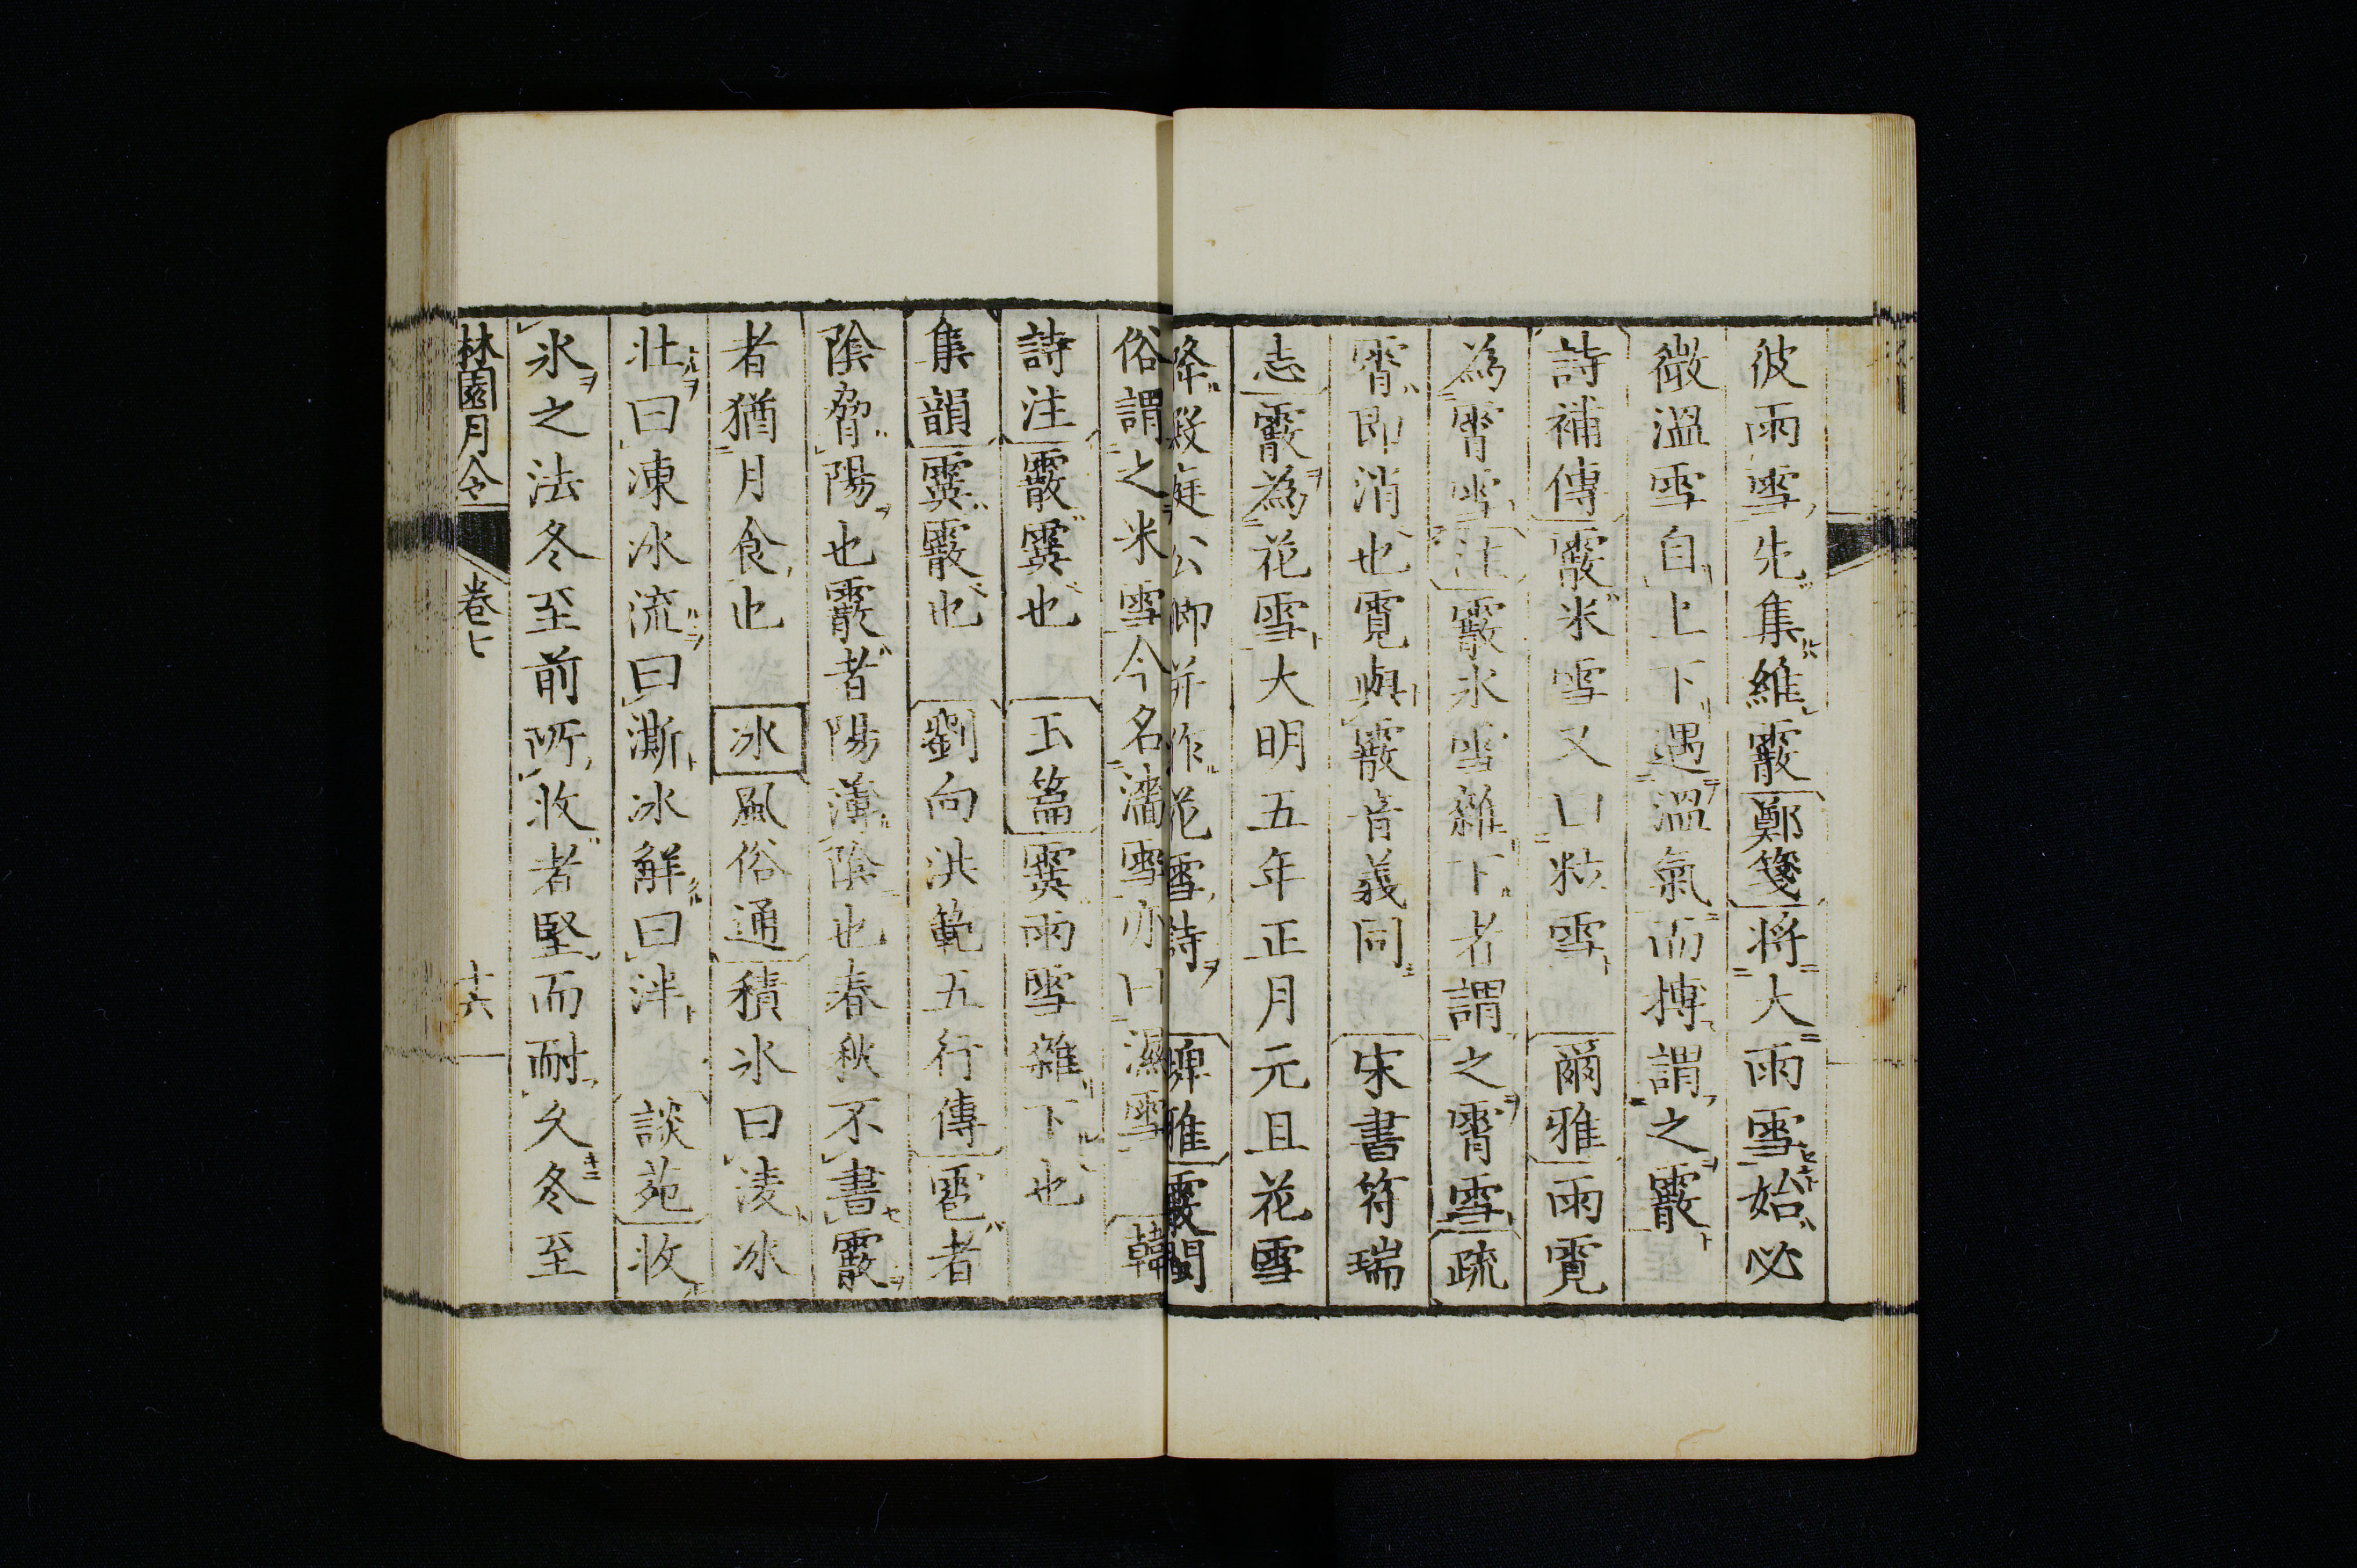 彼雨雪先集維霰鄭箋将大雨雪始必
微溫雪自上下遇溫氣而摶謂之霰
詩補傳霰米雪又曰粒雪爾雅雨霓
為霄雪注霰氷雪雜下者謂之霄雪疏
霄即消也霓與霰音義同宋書符瑞
志霰為花雪大明五年正月元旦花雪
降殿庭公卿并作花雪詩埤雅霰閩
俗謂之米雪今名濇雪亦曰濕雪韓
詩注霰霙也玉篇霙雨雪雜下也
集韻霙霰也劉向洪範五行傳雹者
陰脅陽也霰者陽薄陰也春秋不書霰
者猶月食也冰風俗通積氷曰凌冰
壮曰凍冰流曰澌冰解曰泮談苑收
氷之法冬至前所收者堅而耐久冬至
林園月令 卷七 十六